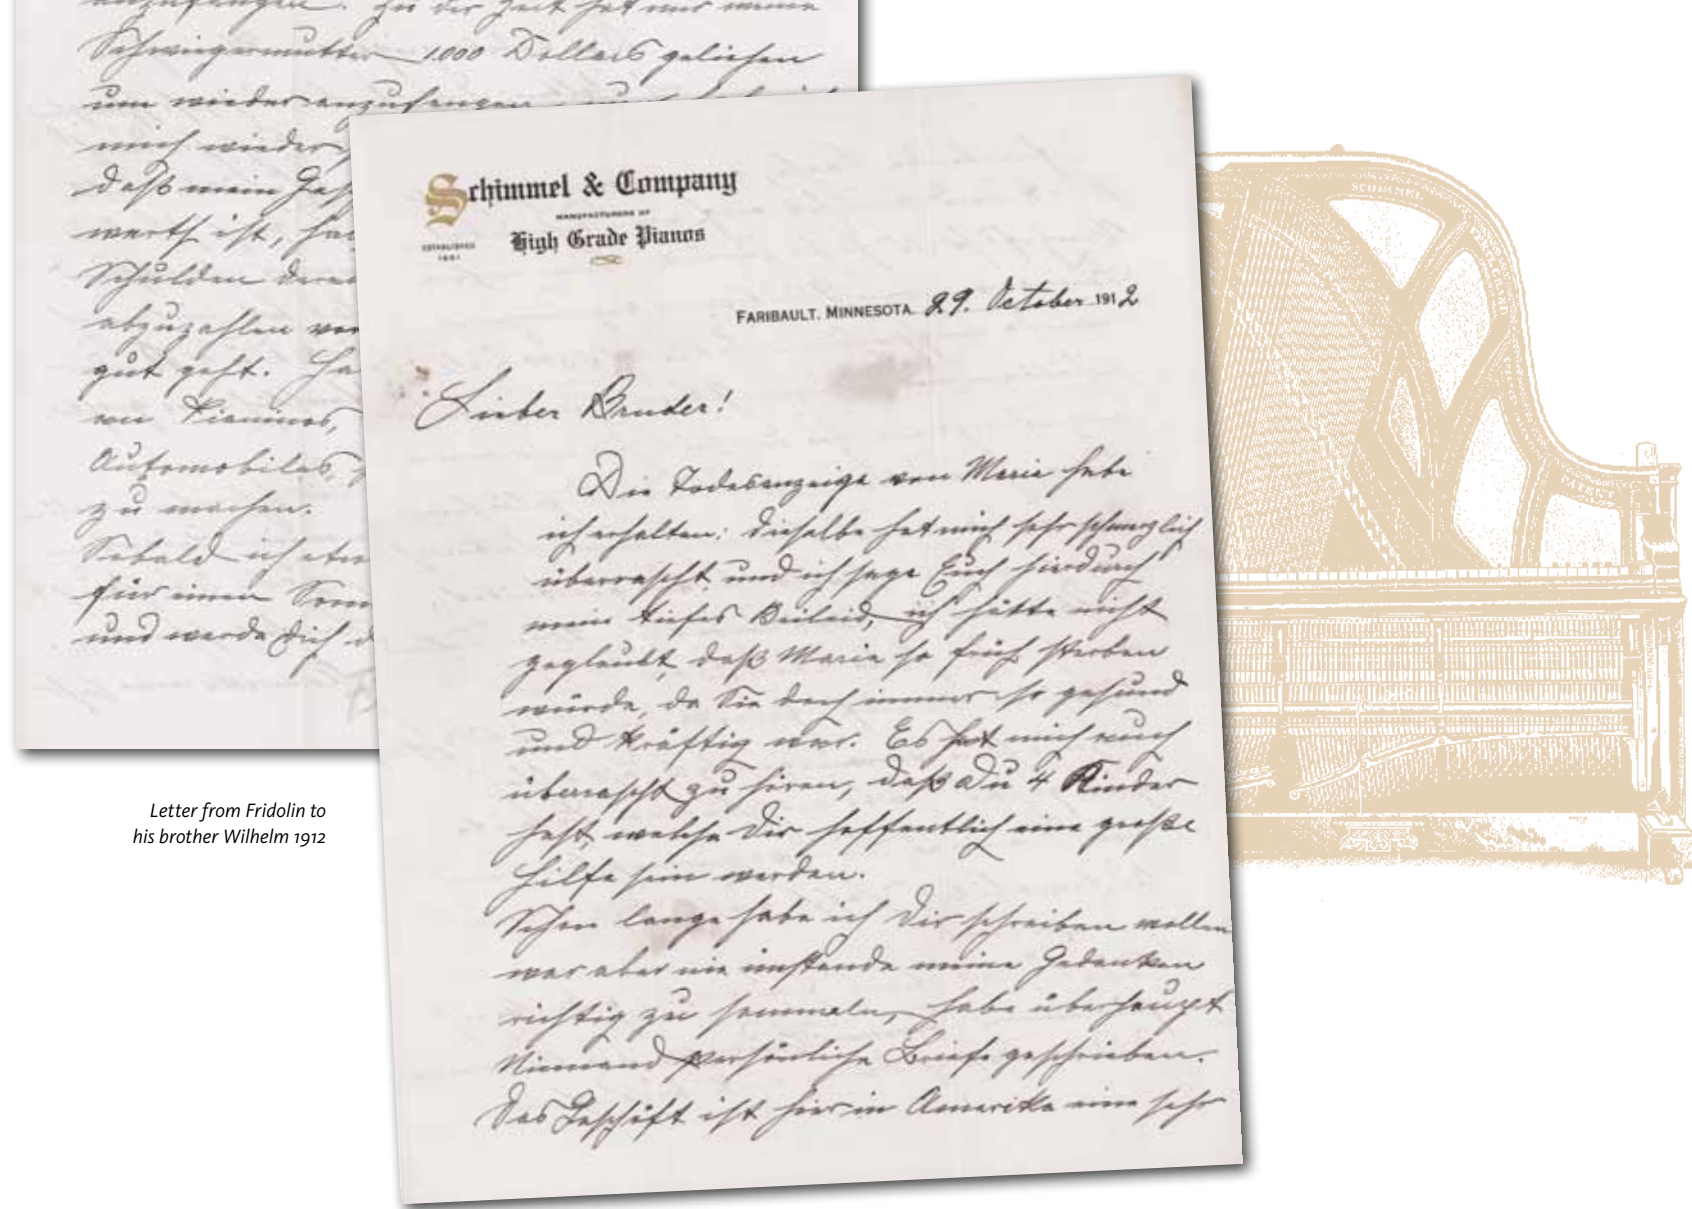 anzufangen. Zu der Zeit hat mir meine
Schwiegermutter 1000 Dollars geliehen
um wieder anzufangen
mich wieder
daß mein Ges
werth ist, ha
Schulden
abzuzahlen
gut geht. Ha
von Pianinos,
Automobiles,
zu machen.
Sobald ich etw
für einen
und werde Dich
Schimmel & Company
MANUFACTURERS OF
High Grade Pianos
ESTABLISHED
FARIBAULT, MINNESOTA. 29. October 1912
Lieber Bruder!
Die Todesanzeige von Marie habe
ich erhalten; dieselbe hat mich sehr schmerzlich
überrascht und ich sage Euch hierdurch
mein tiefes Beileid, ich hätte nicht
geglaubt, daß Marie so früh sterben
würde, da Sie doch immer so gesund
und kräftig war. Es hat mich auch
überrascht zu hören, daß Du 4 Kinder
hast, welche Dir hoffentlich eine große
Hilfe sein werden.
Schon lange habe ich Dir schreiben wollen
war aber nie imstande meine Gedanken
richtig zu sammeln, habe überhaupt
Niemand persönliche Briefe geschrieben.
Das Geschäft ist hier in Amerika eine sehr
SCHIMMEL
PATENT
Letter from Fridolin to
his brother Wilhelm 1912